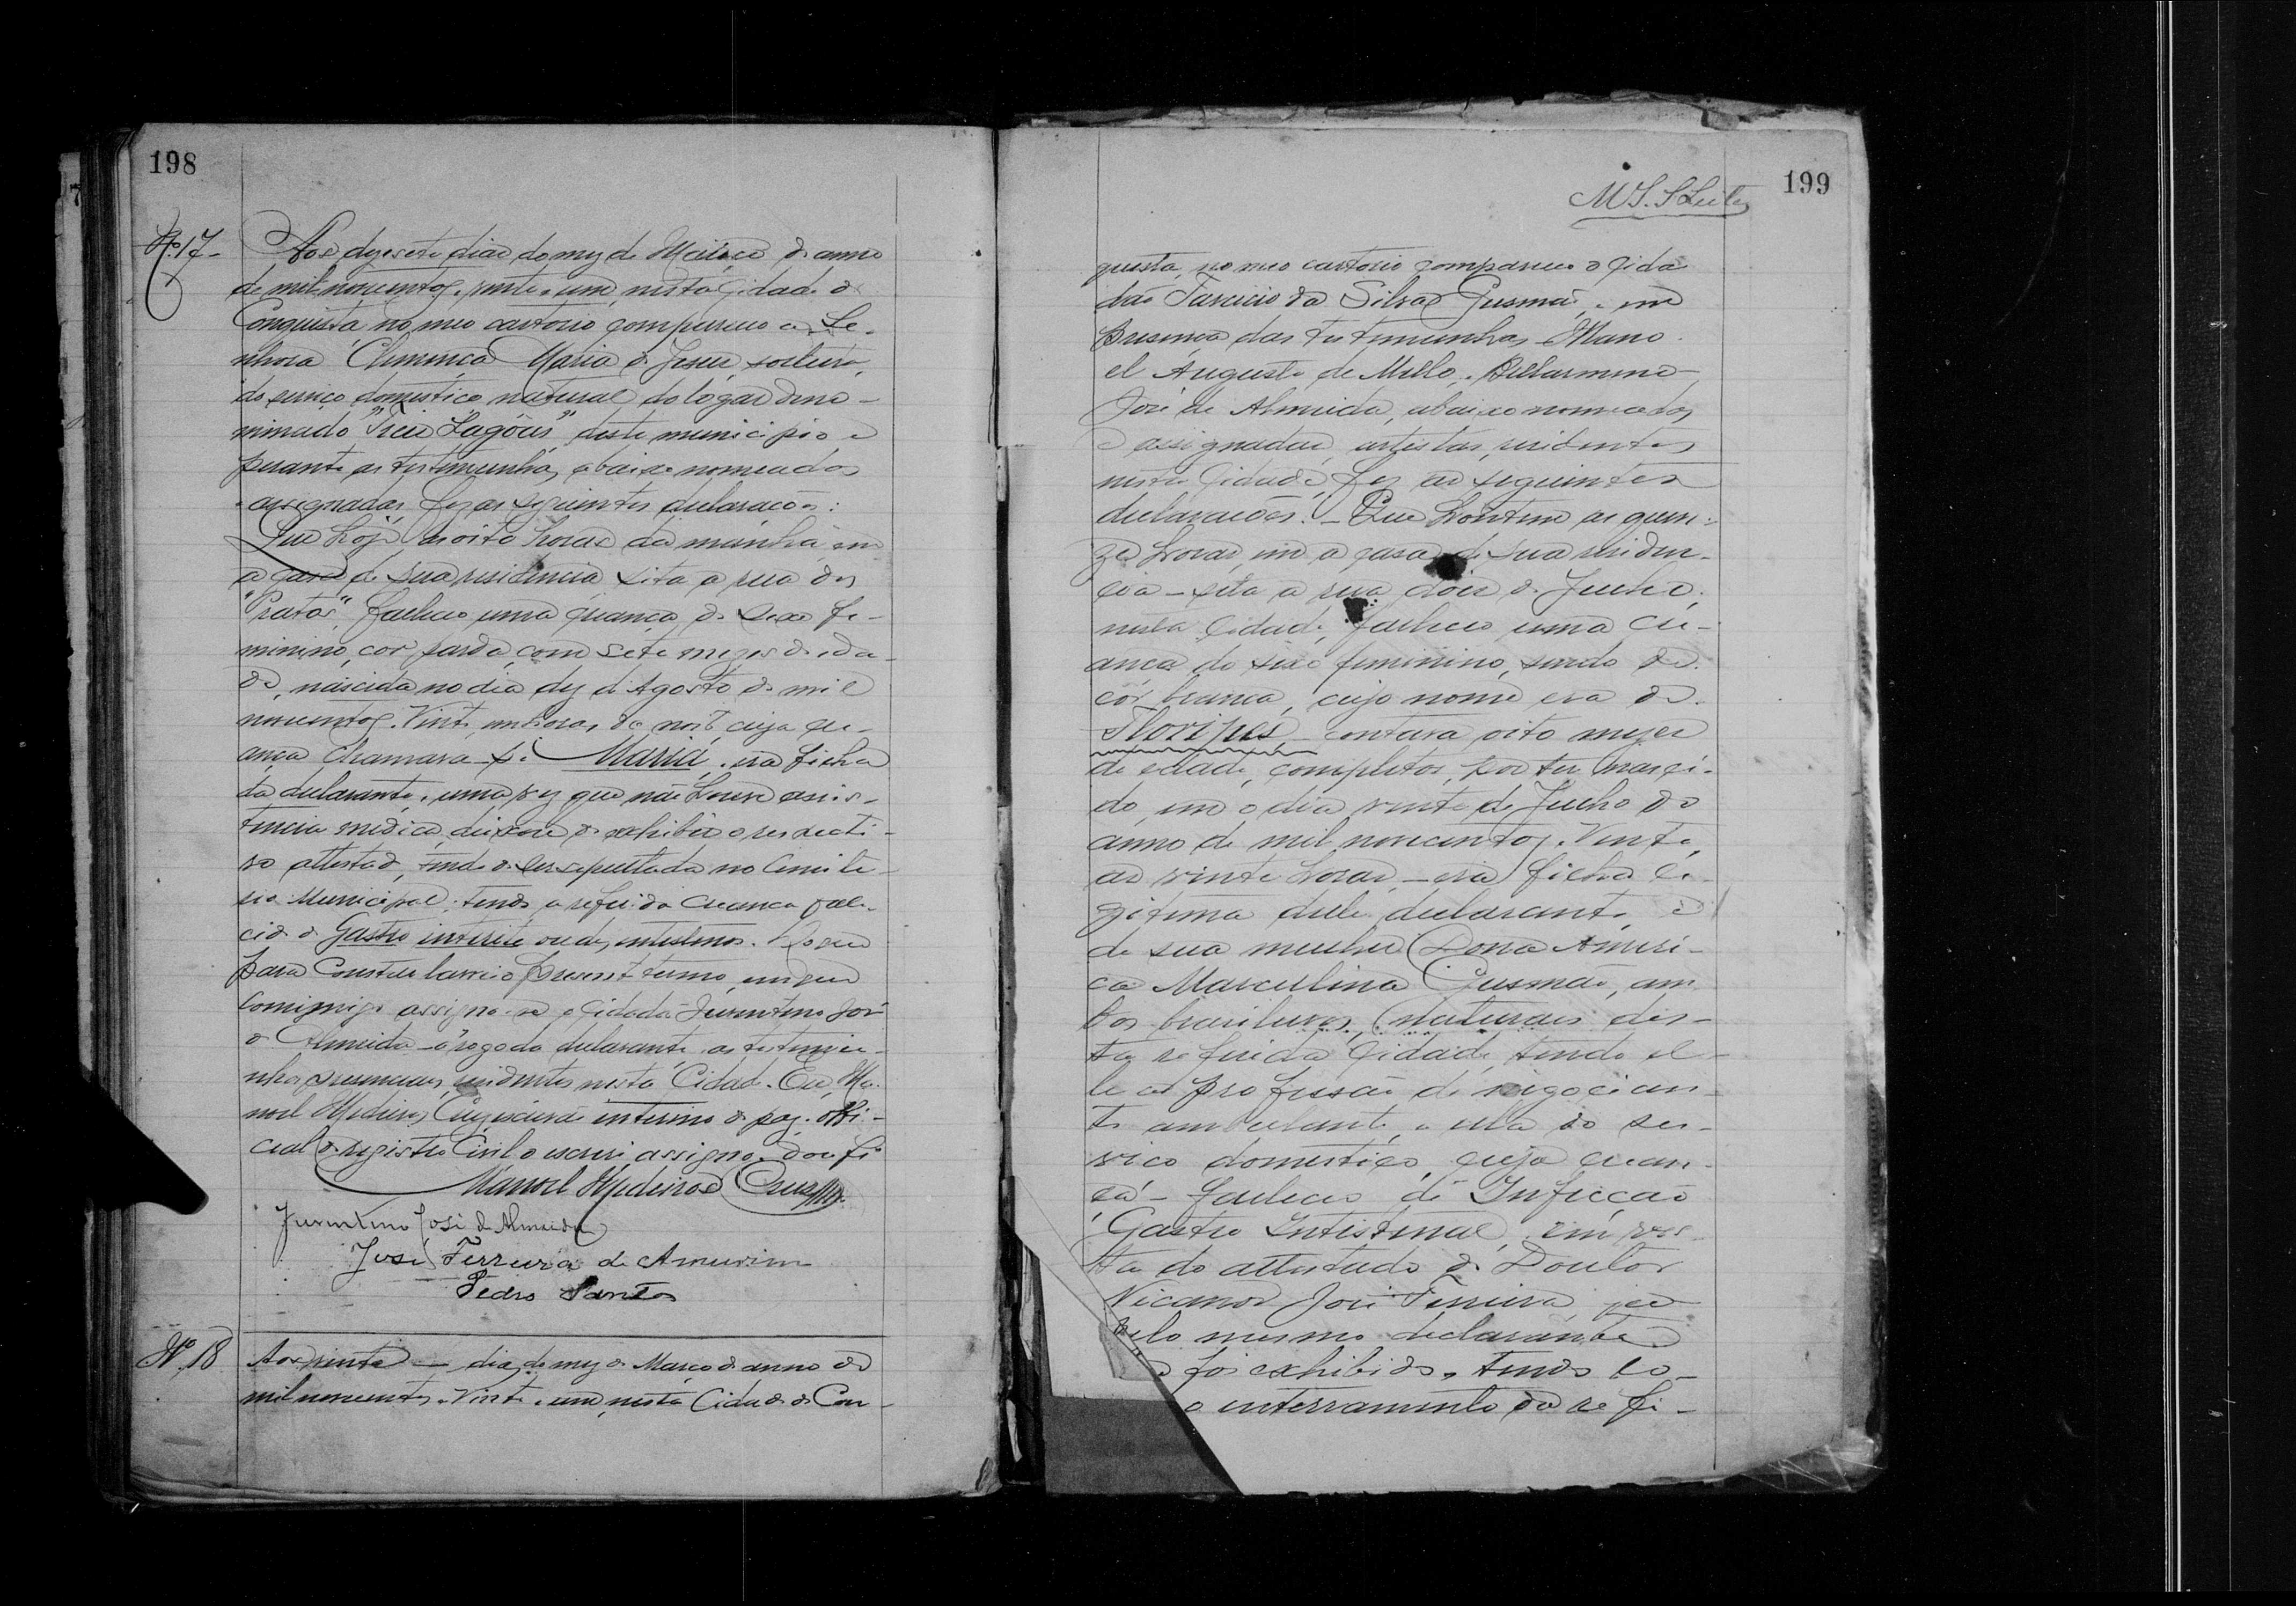 198
Nº 17 - Aos dezesete dias do mez de Março do anno
de mil novecentos e vinte e um, nesta Cidade de
Conquista, no meo cartorio compareceo a Se-
nhora Clemencia Maria de Jesus, solteira,
do serviço domestico natural do logar deno-
minado "Trez Lagôas" deste municipio e
perante as testemunhas abaixo nomeadas
e assignadas fez as seguintes declarações:
Que hoje, as oito horas da manhã em
a casa de sua residencia sita a rua dos
"Pratos", falleceo uma criança do sexo fe-
minino, cor parda, com sete mezes de ida-
de, nascida no dia dez de Agosto de mil
novecentos e vinte, em horas da noite cuja cri-
ança chamava-se Maria, era filha
da declarante, uma vez que não houve assis-
tencia medica, deixou de exhibir o respecti-
vo attestado, tendo de ser sepultada no Cemite-
rio Municipal; tendo a referida creança fale-
cido de Gastro interite intestinos. E para
para constar lavrei o present termo, em que
commigo assigna-se o cidadão Juventino José
de Almeida - a rogo da declarante, as testemu-
nhas presenciaes, residentes nesta Cidade. Eu, Ma-
noel Medeiros Cruz, escrivão interino de paz, offi-
cial do registro Civil o escrevi assigno e dou fé
Manoel Medeiros Cruz
Juventino José de Almeida
José Ferreira de Amurim
Pedro Santos
Nº 18 Aos vinte — dias do mez de Março do anno de
mil novecentos e vinte e um, nesta Cidade de Con-
199
M S. S Leite
quista, no meo cartorio compareceo o Cida
dão Tarcicio da Silva Gusmão, e em
presença das testemunhas Mano
el Augusto de Mello, e Bellarmino
José de Almeida, abaixo nomeados
e assignadas, artistas, residentes
nesta Cidade, fez as seguintes
declarações: - Que hontem as quin-
ze horas, em a casa de sua residen-
cia - sita a rua dois de Julho,
nesta Cidade, falleceo uma cri-
ança do sexo feminino, sendo de
côr branca, cujo nome era de
Floripes - contava oito mezes
de edade, completos, por ter nasci-
do, em o dia vinte de Julho do
anno de mil novecentos e vinte,
as vinte horas, - era filha le-
gitima delle declarante e
de sua mulher Dona Ameri-
ca Marcellina Gusmão, am
bos brasileiros, naturaes des-
ta referida Cidade, tendo el-
le a profissão de negocian-
te ambulante, e ella do ser-
viço domestico, cuja crean-
ça - falleceo de Infecção
Gastro Intestinal, em vis-
ta do attestado do Doutor
Nicanor José Ferreira, que
pelo mesmo declarante
foi exhibido, tendo lo-
o enterramento da refe-